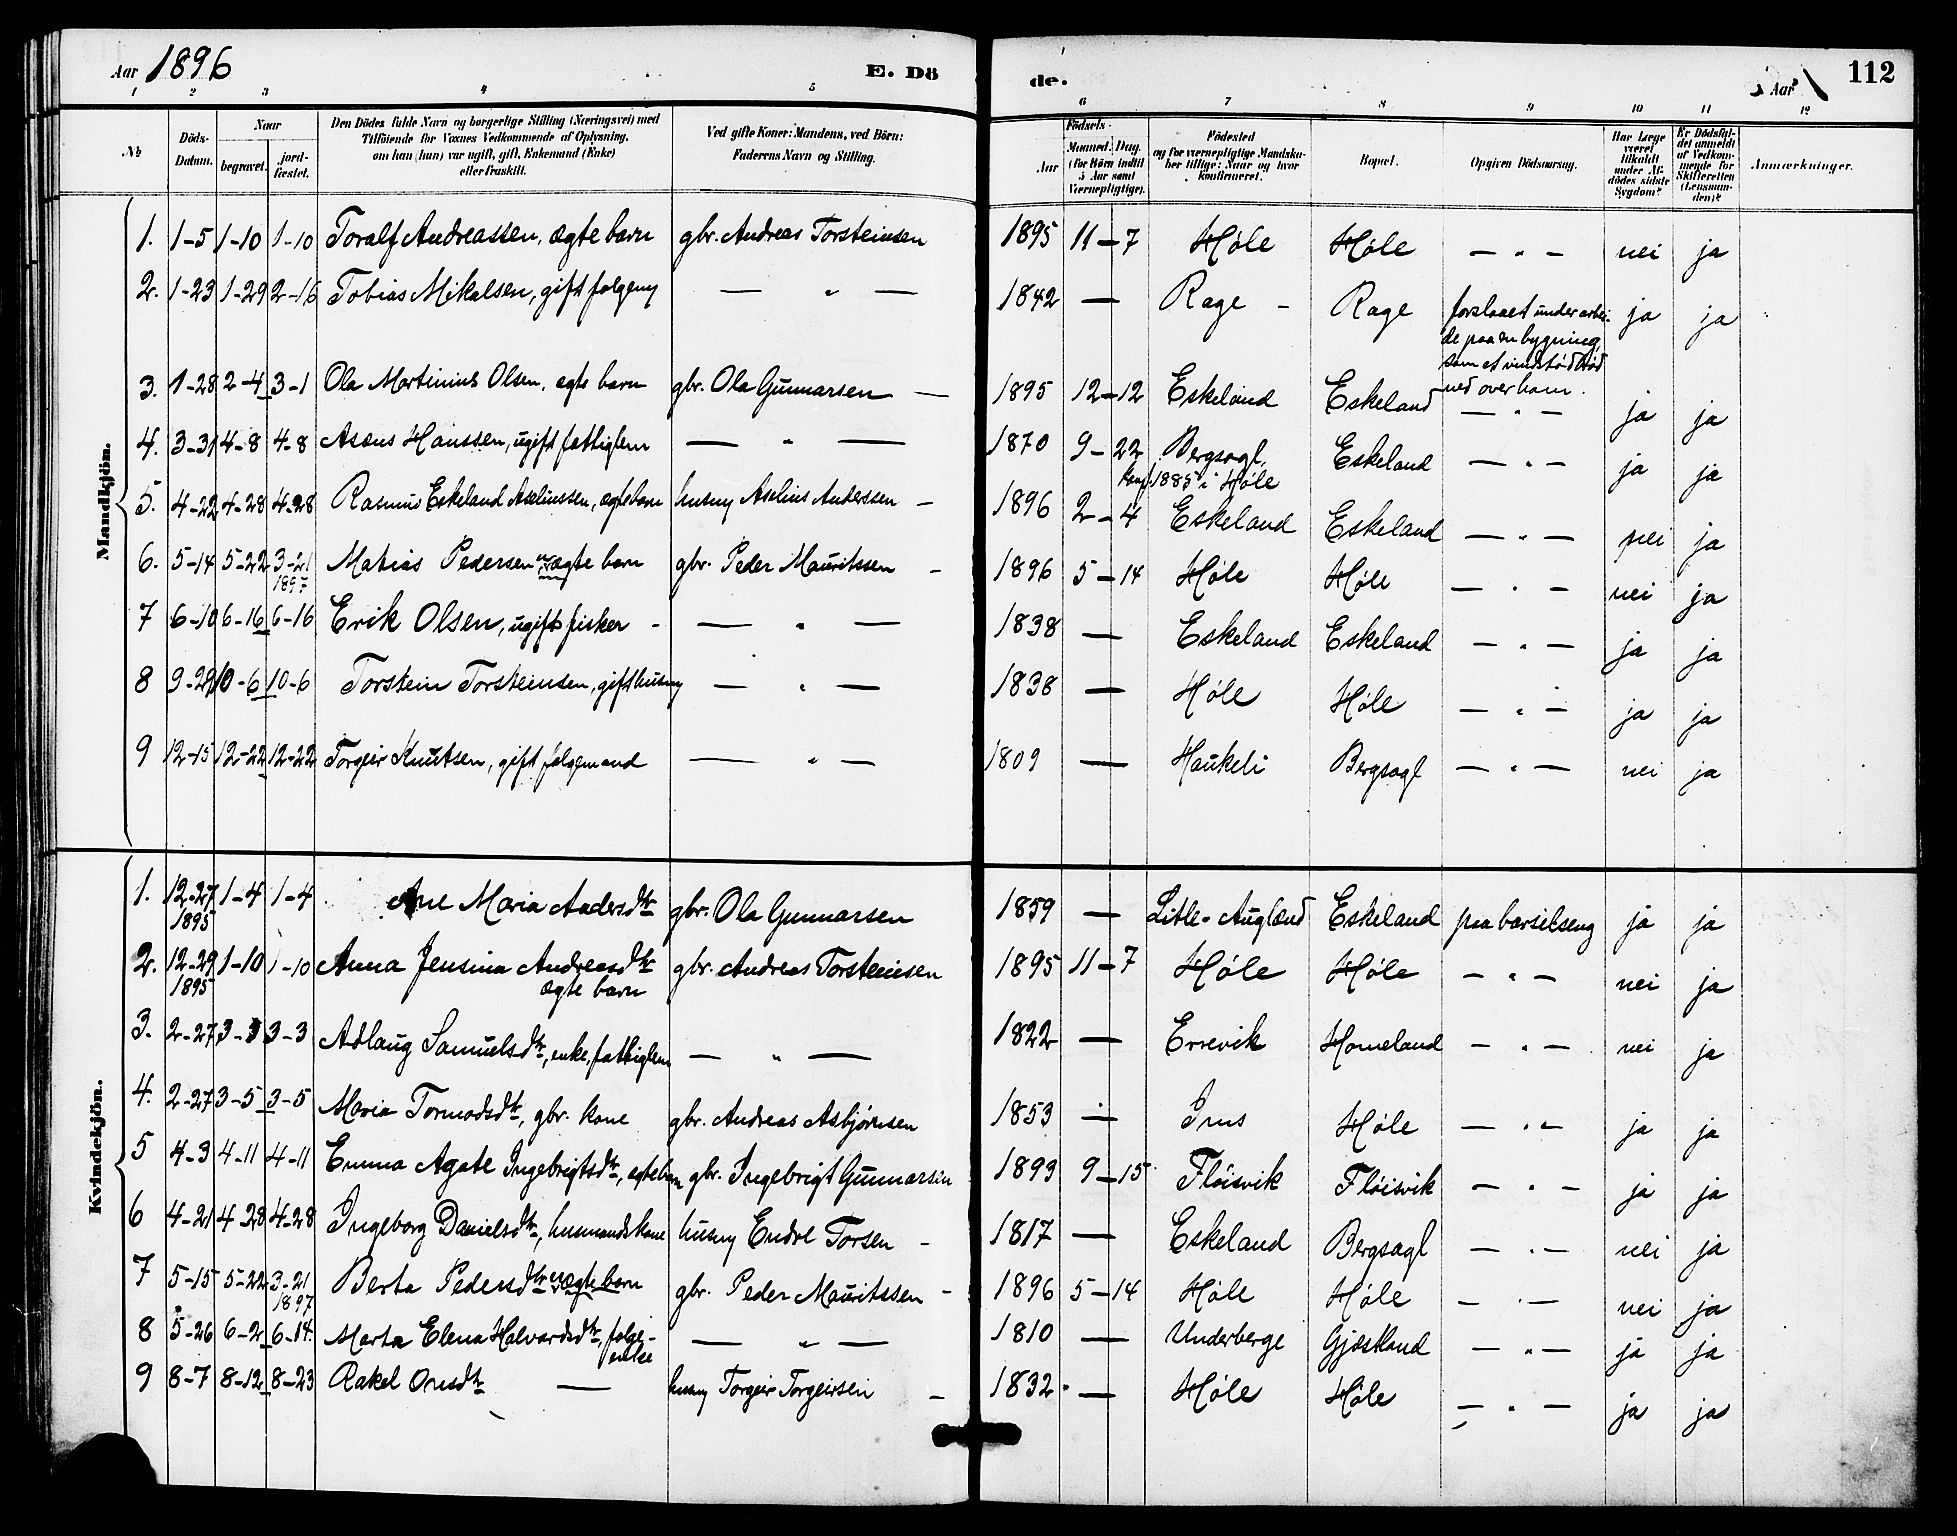 Aar 1896
E. Dö
de.
Aar
112
1 2 3 4 5
6 7 8 9 10 11 12
№
Döds-
Datum.
Naar
begravet.
jord-
fæstet.
Den Dödes fulde Navn og borgerlige Stilling (Næringsvei) med
Tilföiende for Voxnes Vedkommende af Oplysning,
om han (hun) var ugift, gift, Enkemand (Enke)
eller fraskilt.
Ved gifte Koner: Mandens, ved Börn:
Faderens Navn og Stilling.
Födsels-
Aar
Maaned. Dag.
(for Börn indtil
5 Aar samt
Værnepligtige).
Födested
og for værnepligtige Mandska-
ber tillige: Naar og hvor
konfirmeret.
Bopæl.
Opgiven Dödsaarsag.
Har Læge
været
tilkaldt
under Af-
dödes sidste
Sygdom?
Er Dödsfal-
det anmeldt
af Vedkom-
mende for
Skifteretten
(Lensman-
den)?
Anmærkninger.
Mandkjön.
1. 1-5 1-10 1-10 Toralf Andreassen, ægte barn gbr. Andreas Torsteinsen 1895 11-7 Høle Høle — " — nei ja
2. 1-23 1-29 2-16 Tobias Mikalsen, gift følgemy — " — 1842 — Rage Rage forslaaet under arbei-
de paa en bygning,
som et vindstød brød
ned over ham. ja ja
3. 1-28 2-4 3-1 Ola Martinius Olsen, ægte barn gbr. Ola Gunnarsen — 1895 12-12 Eskeland Eskeland — " — ja ja
4. 3-31 4-8 4-8 Asæus Hanssen, ugift fattiglem — " — 1870 9-22 Bergsagl, Eskeland — " — ja ja
konf. 1885 i Høle
5. 4-22 4-28 4-28 Rasmus Eskeland Aseliussen, ægte barn husmy Aselius Anderssen — 1896 2-4 Eskeland Eskeland — " — nei ja
6. 5-14 5-22 3-21 Matias Pedersen uægte barn gbr. Peder Mauritssen — 1896 5-14 Høle Høle — " — nei ja
1897
7 6-10 6-16 6-16 Erik Olsen, ugift fisker — " — 1838 — Eskeland Eskeland — " — ja ja
8 9-29 10-6 10-6 Torstein Torsteinsen, gift husmy — " — 1838 — Høle Høle — " — ja ja
9 12-15 12-22 12-22 Torgeir Knutsen, gift følgemand — " — 1809 — Haukeli Bergsagl — " — nei ja
Kvindekjön.
1. 12-27 1-4 1-4 Ane Maria Andersdtr gbr. Ola Gunnarsen 1859 — Litle-Augland Eskeland paa barselseng ja ja
1895
2. 12-29 1-10 1-10 Anna Jensina Andreasdtr gbr. Andreas Torsteinsen 1895 11-7 Høle Høle — " — nei ja
1895 ægte barn
3. 2-27 3-3 3-3 Adlaug Samuelsdtr, enke, fattiglem — " — 1822 — Errevik Homeland — " — nei ja
4. 2-27 3-5 3-5 Maria Tormodsdtr, gbr. kone gbr. Andreas Asbjørnsen 1853 — Ims Høle — " — ja ja
5 4-3 4-11 4-11 Emma Agate Ingebrigtsdtr, ægte barn gbr. Ingebrigt Gunnarsen 1893 9-15 Fløisvik Fløisvik — " — ja ja
6 4-21 4-28 4-28 Ingeborg Danielsdtr, husmandskone husmy Endre Torsen — 1817 — Eskeland Bergsagl — " — nei ja
7 5-15 5-22 3-21 Berta Pedersdtr uægte barn gbr. Peder Mauritssen — 1896 5-14 Høle Høle — " — nei ja
1897
8 5-26 6-2 6-14 Marta Elena Halvardsdtr, følge- — " — 1810 — Underberge Gjøsland — " — ja ja
enke
9 8-7 8-12 8-23 Rakel Omsdtr — husmy Torgeir Torgeirsen — 1832 — Høle Høle — " — ja ja